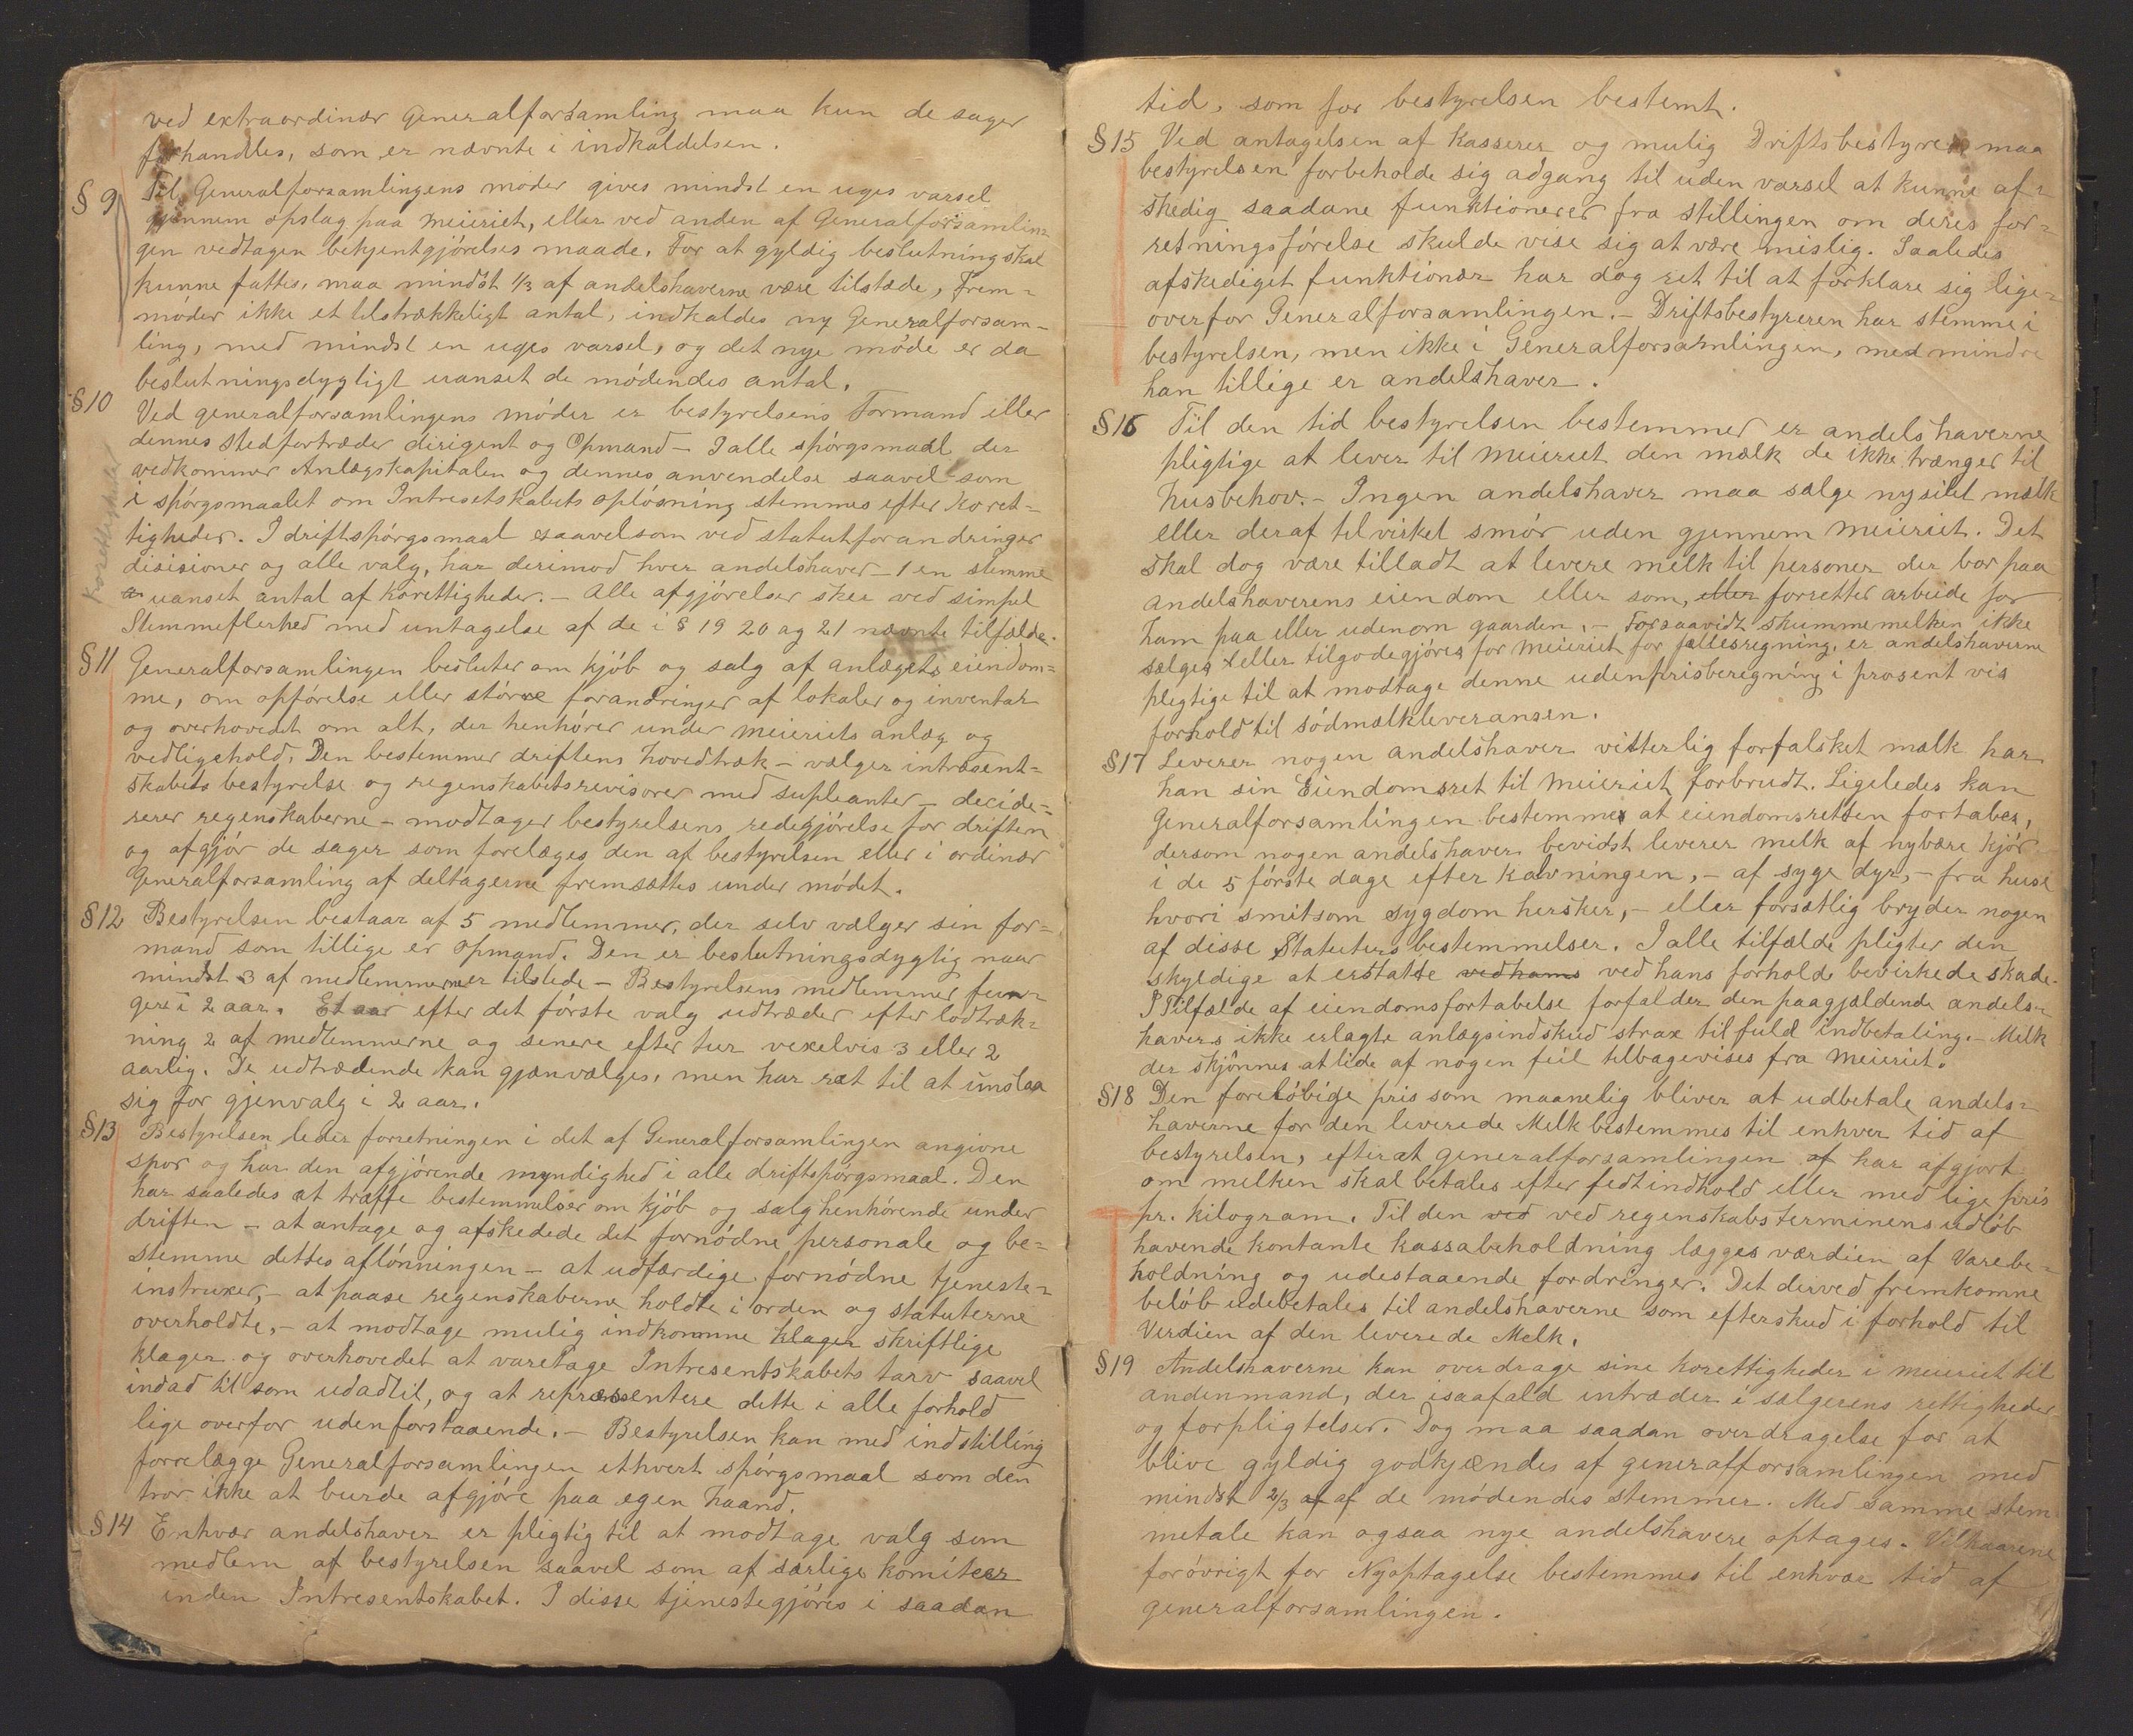 ved extraordinær Generalforsamling maa kun de sager
forhandles, som er nævnte i indkaldelsen.
§ 9 Til Generalforsamlingens møder gives mindst en uges varsel
gjennem opslag paa meieriet, eller ved anden af Generalforsamlin=
gen vedtagen bekjentgjórelses maade. For at gyldig beslutning skal
kunne fattes, maa mindst 1/3 af andelshaverne være tilstæde, Frem=
móder ikke et tilstrækkeligt antal, indkaldes ny Generalforsam-
ling, med mindst en uges varsel, og det nye móde er da
beslutningsdygtigt uanset de módendes antal.
§10 Ved generalforsamlingens móder er bestyrelsens Formand eller
dennes stedfortræder dirigent og Opmand – I alle spórgsmaal der
vedkommer Anlægskapitalen og dennes anvendelse saavel som
i spórgsmaalet om Intresetskabets oplósning stemmes efter Koret=
tigheder. I driftspórgsmaal saavelsom ved statutforandringer
disisioner og alle valg, har derimod hver andelshaver – 1 en stemme
uanset antal af korettigheder. – Alle afgjórelser skee ved simpel
Stemmeflerhed med untagelse af de i § 19 20 og 21 nævnte tilfælde.
korettigheder
§11 Generalforsamlingen besluter om kjób og salg af anlægets eiendom=
me, om opfórelse eller stórre forandringer af lokaler og inventar
og overhovedet om alt, der henhórer under meieriets anlæg og
vedligehold. Den bestemmer driftens hovedtræk – vælger intræsent=
skabets bestyrelse og regenskabetsrevisorer med supleanter – decide=
rerer regenskaberne – modtager bestyrelsens redegjórelse for driften
og afgjór de sager som forelæges den af bestyrelsen eller i ordinær
Generalforsamling af deltagerne fremsættes under módet.
§12 Bestyrelsen bestaar af 5 medlemmer, der selv vælger sin for=
mand som tillige er opmand. Den er beslutningsdygtig naar
mindst 3 af medlemmerne er tilstede – Bestyrelsens medlemmer fun=
gere i 2 aar. Et aar efter det fórste valg udtræder efter lodtræk=
ning 2 af medlemmerne og senere efter tur vexelvis 3 eller 2
aarlig. De udtrædende kan gjænvælges, men har ræt til at unslaa
sig for gjenvalg i 2 aar.
§13 Bestyrelsen leder forretningen i det af Generalforsamlingen angivne
spor og har den afgjórende myndighed i alle driftspórgsmaal. Den
har saaledes at træffe bestemmelser om kjób og salg henhórende under
driften – at antage og afskedede det fornódne personale og be=
stemme dettes aflónningen – at udfærdige fornódne tjeneste=
instruxer, – at paase regenskaberne holdte i orden og statuterne
overholdte, – at modtage mulig indkomne klager skriftlige
klager og overhovedet at varetage Intresentskabets tarv saavel
indad til som udadtil, og at repræsentere dette i alle forhold
lige overfor udenforstaaende. – Bestyrelsen kan med indstilling
forrelægge Generalforsamlingen ethvert spórgsmaal som den
tror ikke at burde afgjóre paa egen haand.
§14 Enhvær andelshaver er pligtig til at modtage valg som
medlem af bestyrelsen saavel som af særlige komiteer
inden Intresentskabet. I disse tjenestegjóres i saadan
tid, som for bestyrelsen bestemt.
§15 Ved antagelsen af Kasserer og mulig Driftsbestyrer maa
bestyrelsen forbeholde sig adgang til uden varsel at kunne af=
skedig saadane funktionerer fra stillingen om deres for=
retningsfórelse skulde vise sig at være mislig. Saaledes
afskediget funktionær har dog ret til at forklare sig lige=
overfor Generalforsamlingen. – Driftsbestyreren har stemme i
bestyrelsen, men ikke i Generalforsamlingen, med mindre
han tillige er andelshaver.
§16 Til den tid bestyrelsen bestemmer er andelshaverne
pligtige at lever til Meieriet den mælk de ikke trænger til
husbehov. – Ingen andelshaver maa sælge nysilet mælk
eller deraf tilvirket smór uden gjennem meieriet. Det
skal dog være tilladt at levere melk til personer der bor paa
andelshaverens eiendom eller som, eller forretter arbeide for
ham paa eller udenom gaarden. – Forsaavidt skummemelken ikke
sælges eller tilgodegjóres for Meieriet for fællesregning, er andelshaverne
plegtige til at modtage denne uden prisberegning i prosent vis
forhold til sódmælkleveransen.
§17 Leverer nogen andelshaver vitterlig forfalsket mælk har
han sin Eiendomsret til Meieriet forbrudt. Ligeledes kan
Generalforsamlingen bestemmes at eiendomsretten fortabes,
dersom nogen andelshaver bevidst leverer melk af nybære kjór
i de 5 fórste dage efter kalvningen, – af syge dyr, – fra huse
hvori smitsom sygdom hersker, – eller forsætlig bryder nogen
af disse Statuters bestemmelser. I alle tilfælde pligter den
skyldige at erstatte vedhans ved hans forholde bevirkede skade.
I Tilfælde af eiendomsfortabelse forfalder den paagjældende andels=
havers ikke erlagte anlægsindskud strax til fuld indbetaling. – Melk
der skjónnes at lide af nogen feil tilbagevises fra Meieriet.
§18 Den forelóbige pris som maanelig bliver at udbetale andels=
haverne for den leverede Melk bestemmes til enhver tid af
bestyrelsen, efterat generalforsamlingen af har afgjort
om melken skal betales efter fedtindhold eller med lige pris
pr. kilogram. Til den ved ved regenskabsterminens udlób
havende kontante kassabeholdning lægges værdien af Varebe=
holdning og udestaaende fordringer. Det derved fremkomne
belób udebetales til andelshaverne som efterskud i forhold til
Verdien af den leverede Melk.
§19 Andelshaverne kan overdrage sine korettigheder i meieriet til
andenmand, der isaafald intræder i sælgerens rettigheder
og forpligtelser. Dog maa saadan overdragelse for at
blive gyldig godkjændes af generalforsamlingen med
mindst 2/3 af af de módendes stemmer. Med samme stem
metale kan ogsaa nye andelshavere optages. Vilkaarene
foróvrigt for Nyoptagelse bestemmes til enhvær tid af
generalforsamlingen.